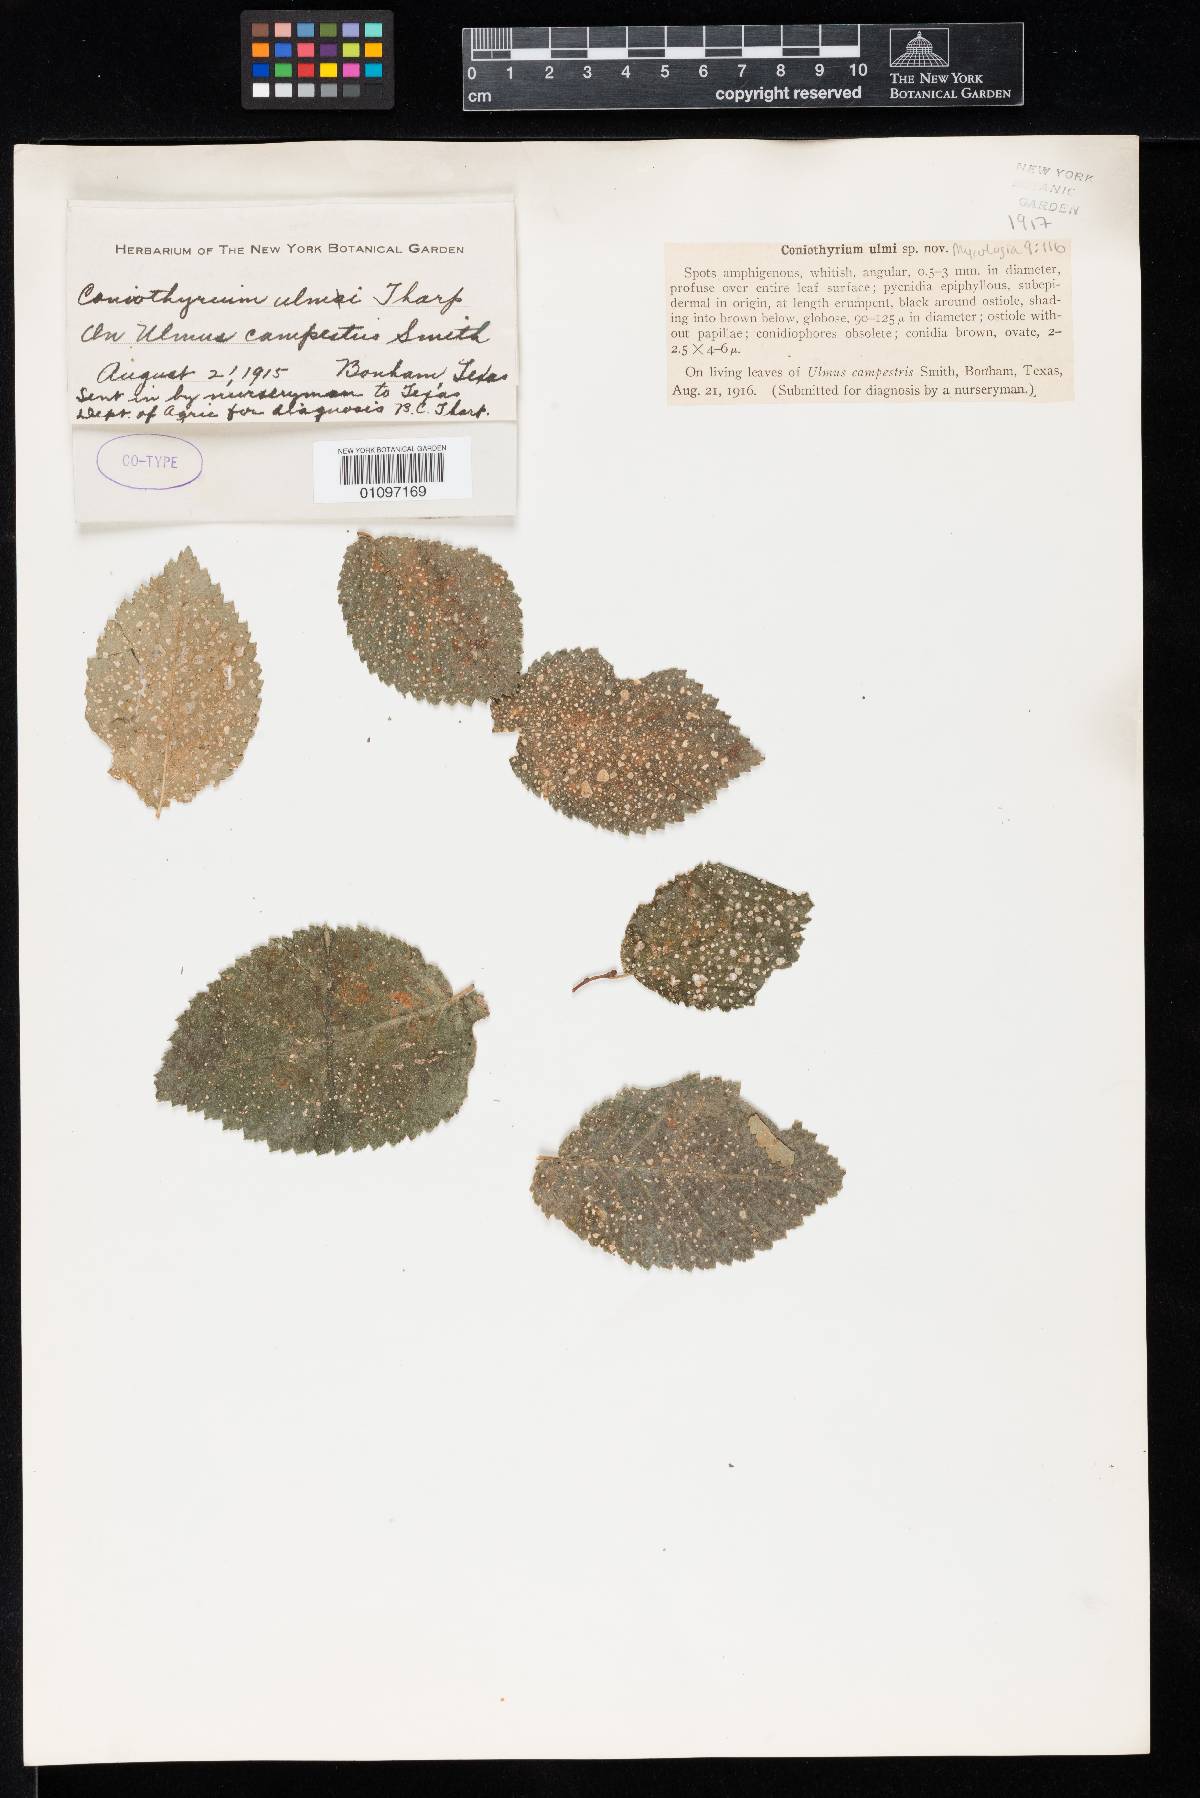 0 1 2 3 4 5 6 7 8 9 10
cm
copyright reserved
THE NEW YORK
BOTANICAL GARDEN
NEW YORK
BOTANIC
GARDEN
1917
HERBARIUM OF THE NEW YORK BOTANICAL GARDEN
Coniothyrium ulmi Tharp
On Ulmus campestris Smith
August 21, 1915 Bonham, Texas
Sent in by nurseryman to Texas
Dept. of Agric for diagnosis B.C. Tharp.
CO-TYPE
NEW YORK BOTANICAL GARDEN
01097169
Coniothyrium ulmi sp. nov. Mycologia 9:116
Spots amphigenous, whitish, angular, 0.5–3 mm. in diameter,
profuse over entire leaf surface; pycnidia epiphyllous, subepi-
dermal in origin, at length erumpent, black around ostiole, shad-
ing into brown below, globose, 90–125 μ in diameter; ostiole with-
out papillae; conidiophores obsolete; conidia brown, ovate, 2–
2.5 × 4–6 μ.
On living leaves of Ulmus campestris Smith, Bonham, Texas,
Aug. 21, 1916. (Submitted for diagnosis by a nurseryman.)